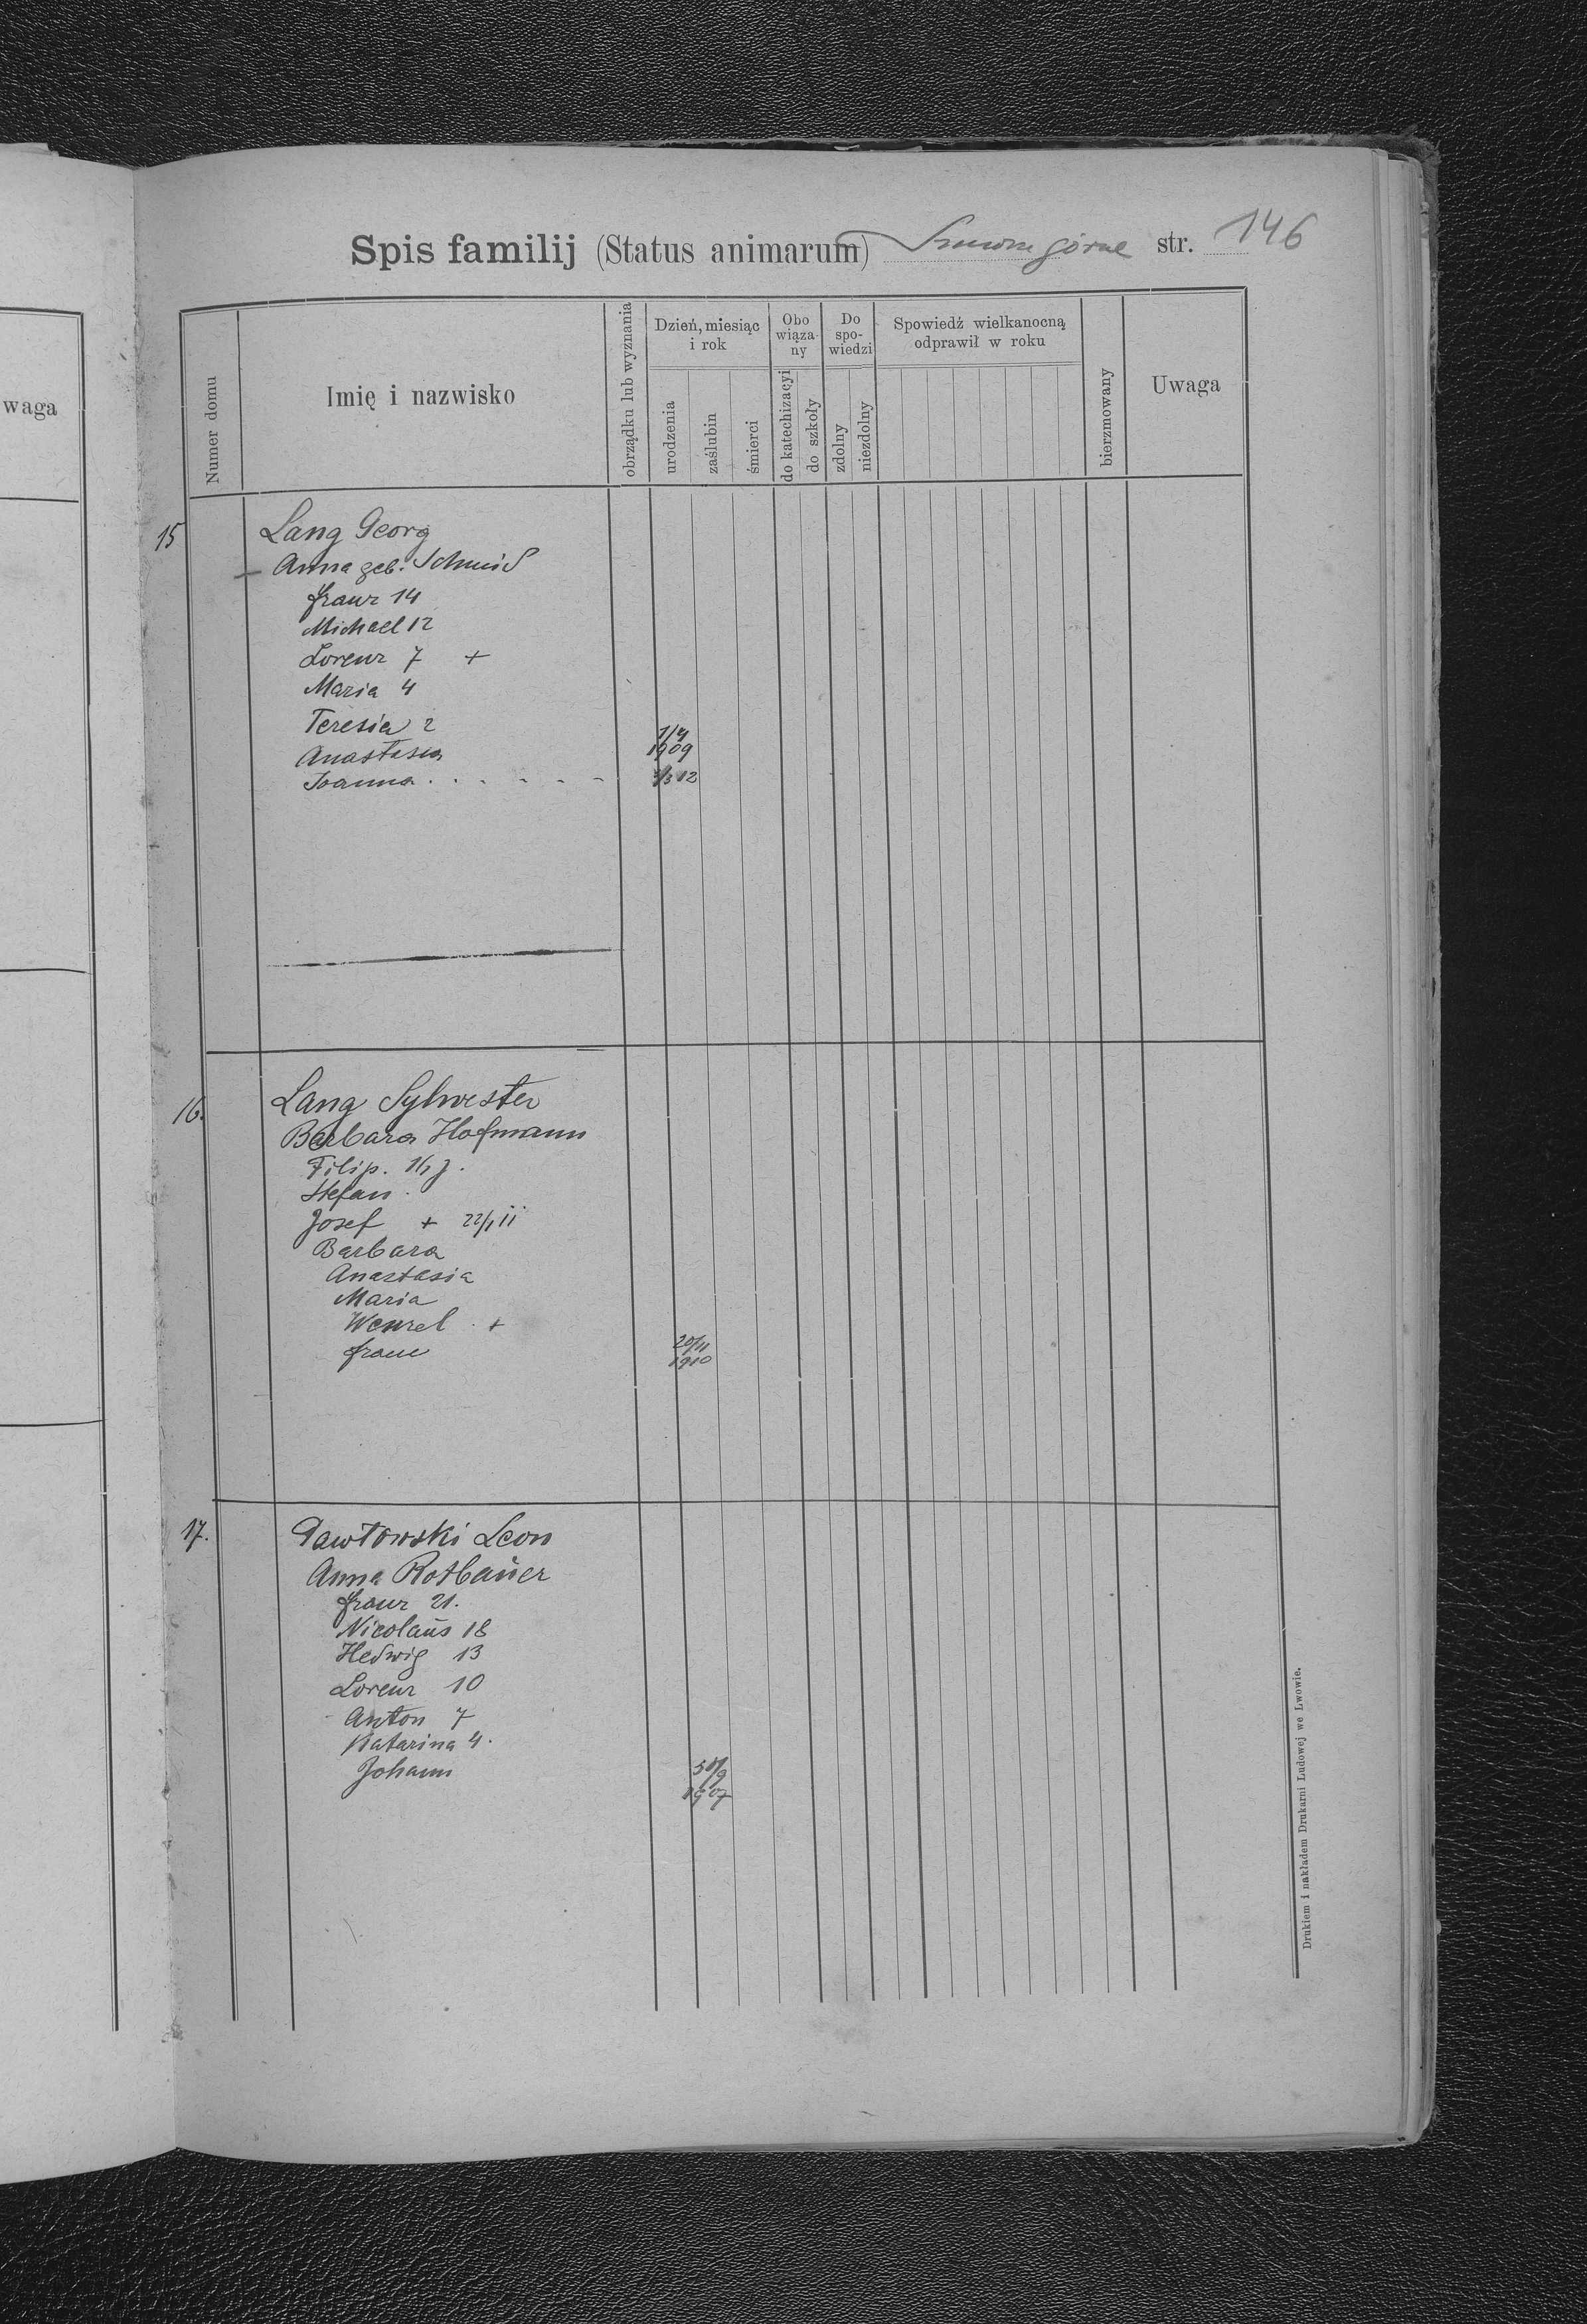 waga
Spis familij (Status animarum) górne str. 146
Numer domu
Imię i nazwisko
obrządku lub wyznania
Dzień, miesiąc i rok
urodzenia
zaślubin
śmierci
Obo wiąza- ny
do katechizacyi
do szkoły
Do spo- wiedzi
zdolny
niezdolny
Spowiedź wielkanocną odprawił w roku
bierzmowany
Uwaga
15 Lang Georg
Anna geb. Schmid
Franz 14
Michael 12
Lorenz 7 +
Maria 4
Teresia 2
Anastasia 1909
Joanna . . - - - - 12
16. Lang Sylwester
Barbara Hofmann
Filip.
Stefan.
Josef + 22/1 11
Barbara
Anastasia
Maria
Wenzel +
Franz 20/11 1910
17. Pawłowski Leon
Anna Rotbaŭer
Franz 21.
Nicolaŭs 18
Hedwig 13
Lorenz 10
Anton 7
Katarina 4.
Johann 30/9 1907
Drukiem i nakładem Drukarni Ludowej we Lwowie.